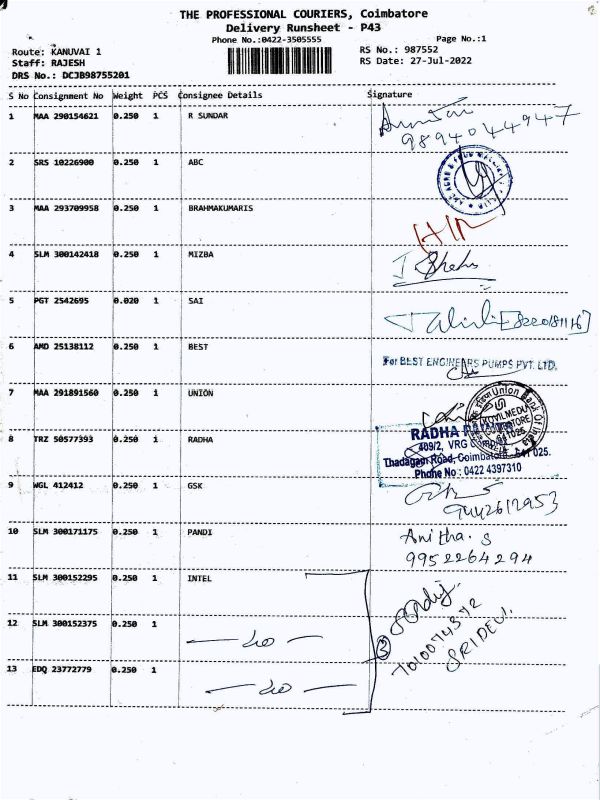 THE PROFESSIONAL COURIERS, Coimbatore
Delivery Runsheet - P43
Phone No.:0422-3505555
Page No.:1
Route: KANUVAI 1
RS No.: 987552
Staff: RAJESH
RS Date: 27-Jul-2022
DRS No.: DCJB98755201
S No Consignment No Weight PCS Consignee Details Signature
1 MAA 290154621 0.250 1 R SUNDAR
9894044947
2 SRS 10226900 0.250 1 ABC
3 MAA 293709958 0.250 1 BRAHMAKUMARIS
4 SLM 300142418 0.250 1 MIZBA
5 PGT 2542695 0.020 1 SAI
[8220181116]
6 AMD 25138112 0.250 1 BEST
For BEST ENGINEERS PUMPS PVT. LTD.
7 MAA 291891560 0.250 1 UNION
Union Bank Of India
KUVILMEDU
8 TRZ 50577393 0.250 1 RADHA
RADHA
409/2, VRG
Thadagam Road, Coimbatore - 641 025.
Phone No : 0422 4397310
9 WGL 412412 0.250 1 GSK
9442612953
10 SLM 300171175 0.250 1 PANDI
Anitha. S
9952264294
11 SLM 300152295 0.250 1 INTEL
12 SLM 300152375 0.250 1
— do —
3
7010074372
SRIDEVI.
13 EDQ 23772779 0.250 1
— do —